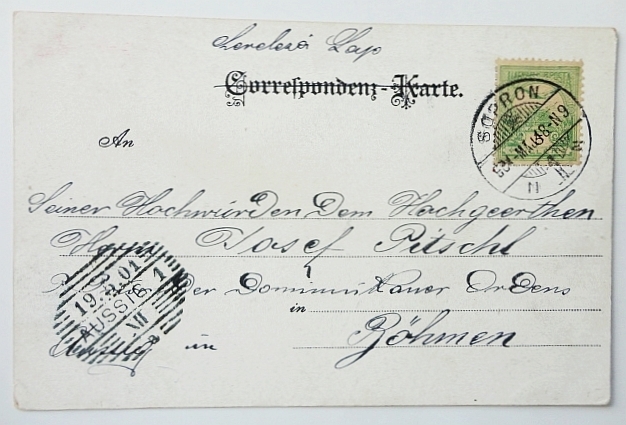 Levelező Lap
Correspondenz-Karte.
SOPRON
An
Seiner Hochwürden Dem Hochgeerthen
Herrn Josef Pitschl
der Dominikauer Ordens
in
in Böhmen
19.8.01
AUSSIG 1
VII